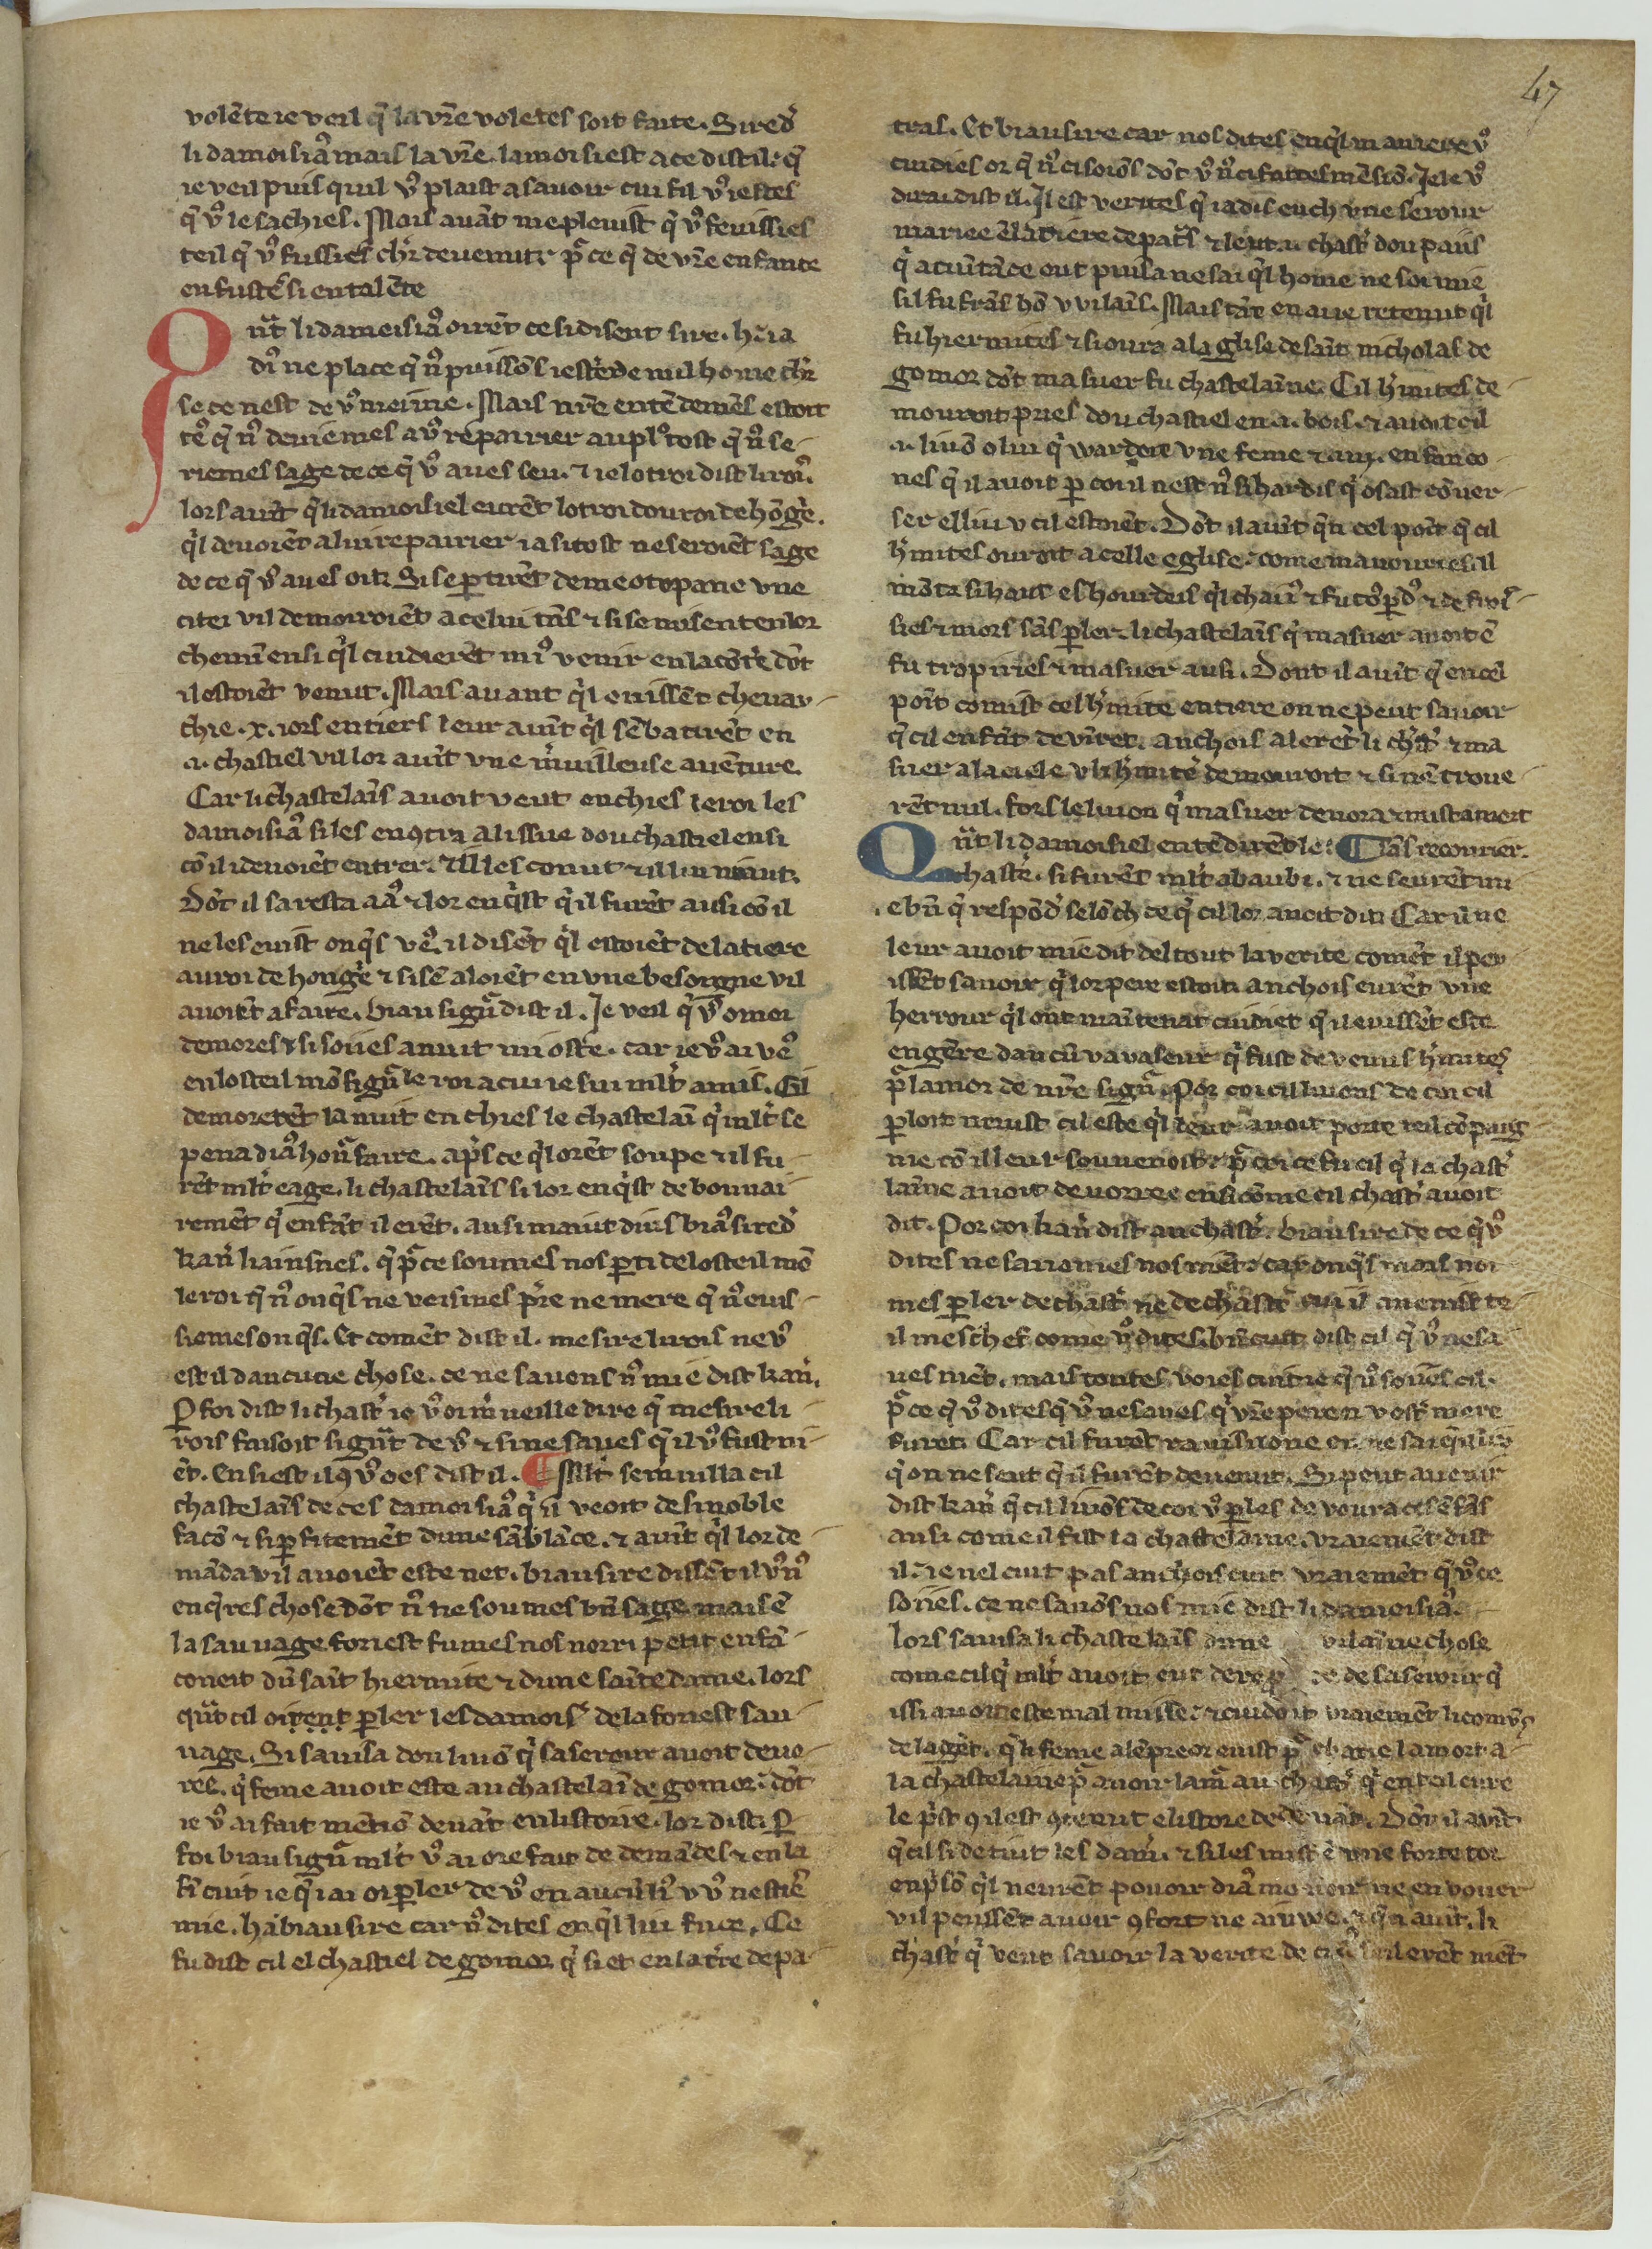 47
volēte ie veil q̄ la vr̄e voletes soit faite. Sire d̄
li damoisiaꝰ mais la vr̄e. lamoisi est a ce dist il. q̄
ie veil puis quil vꝰ plaist a savoir cui fil vꝰ iestes
q̄ vꝰ le sachies. Mais avāt me pleuist q̄ vꝰ feuissies
teil q̄ vꝰ fussies chr̄ devenut. pͣ ce q̄ de vr̄e enfance
en fustes si entalēte
Qͣt li dameisiaꝰ oirēt ce si disent sire. ia
diꝰ ne place q̄ nꝰ puissōs iestre de nul home chr̄
se ce nest de vꝰ meime. Mais nr̄e entēdemēs estoit
teꝰ q̄ nꝰ deviemes a vꝰ repairier au plꝰ tost q̄ nꝰ se-
riemes sage de ce q̄ vꝰ aves seu. ⁊ ie lotroi dist li rois.
lors avīt q̄ li damoisiel eurēt lotroi dou roi de hōgͥe.
q̄l devoiēt a lui repairier ia si tost ne seroiēt sage
de ce q̄ vꝰ aves oit. Si se ꝑtirēt de meotopane vne
citei v il demouroiēt a celui tās ⁊ si se misent en lor
chemī ensi q̄l cuidierēt miꝰ venir en la cōtre dōt
il estoiēt venut. Mais avant q̄l euissēt chevau-
chie .x. iors entiers leur avīt q̄l sēbatirēt en
.i. chastiel v il lor avīt vne mͥuilleuse avēture.
Car li chastelaīs avoit veut enchies le roi les
damoisiaꝰ si les encōtra a lissue dou chastiel ensi
cō il i devoiēt entrer. ⁊ il les conut ⁊ il lui niaut.
Dōt il saresta a aꝰ ⁊ lor enq̄st q̄ il furēt ausi cō il
ne les euist onq̄s veꝰ. il disēt q̄l estoiēt de la tiere
au roi de hongͥe ⁊ si sē aloiēt en vne besongne v il
avoiēt a faire. biau signͣ dist il. Je veil q̄ vꝰ o moi
demores ⁊ si soiies anuit mi oste. car ie vꝰ ai veꝰ
en losteil mō signͣ le roi a cui ie sui ml̄t amis. Cil
demorerēt la nuit en chies le chastelaī q̄ ml̄t se
pena diaꝰ honͣ faire. apͥs ce q̄l orēt soupe ⁊ il fu-
rēt ml̄t eage. li chastelaīs si lor enq̄st de bonnai-
remēt q̄ enfāt il erēt. ausi maiut dius biaꝰ sire d̄
kan̄ li ainsnes. q̄ pͣ ce soumes nos ꝑti de losteil mō
le roi q̄ nꝰ onq̄s ne veismes pͥre ne mere q̄ nꝰ euis-
siemes onq̄s. Et comēt dist il. me sire li rois ne vꝰ
est il daucune chose. ce ne savens nꝰ mie dist kan̄.
Ꝑ foi dist li chastͥ ie vꝰ oi mͥueille dire q̄ me sire li
rois faisoit signͣt de vꝰ ⁊ si ne saves q̄ il vꝰ fust ni-
ēt. Ensi est il q̄ vꝰ oes dist il. ¶ Ml̄t semͥuilla cil
chastelaīs de ces damoisiaꝰ q̄ il veoit de si noble
facō ⁊ si ꝑfitemēt dune sāblāce. ⁊ avīt q̄l lor de-
māda v il avoiēt este net. biau sire dissēt il vꝰ nꝰ
enq̄res chose dōt nꝰ ne soumes bn̄ sage mais ē
la sauvage foriest fumes nos norri petit enfā-
coneit dū saīt hiermite ⁊ dune saīte dame. lors
qͣt cil oirent ꝑler les damoisͥ de la foriest sau-
vage. Si savisa dou liuō q̄ sa serour avoit devo-
ree. q̄ feme avoit este au chastelaī de gomor. dōt
ie vꝰ ai fait mētiō devāt en listorie. lor dist. Ꝑ
foi biau signͣ ml̄t vꝰ ai ore fait de demādes ⁊ en la
fī cuit ie q̄ iai oi ꝑler de vꝰ en aucū liꝰ v vꝰ nestie
mie. ha biau sire car nꝰ dites en q̄l liu fu ce. Ce
fu dist cil el chastiel de gomor q̄ siet en la tͥre de pa-
tras. Et biau sire car nos dites en q̄l maniere vꝰ
cuidies or q̄ nꝰ ci soiōs dōt vꝰ nꝰ ci faites mēsiō. Je le vꝰ
dirai dist il. Il est verites q̄ iadis euch vne serour
mariee ē la tiere de patͣs ⁊ leut .i. chastͥ dou paiis
q̄ acuītāce out puis a ne sai q̄l home ne soi mie
sil fu frās hō v vilaīs. Mais tāt en ave retenut q̄l
fu hiermites ⁊ si oura a la glise de saīt nicholas de
gomor dōt ma suer fu chastelaīne. Cil hͥmites de-
mouroit pries dou chastiel en .i. bois. ⁊ avoit cil
.i. liuō o lui q̄ wardoit vne feme ⁊ .iiij. enfanco-
nes q̄ il avoit ꝑ coi il nest nꝰ si hardis q̄ osast cōver-
ser el liu v cil estoiēt. Dōt il avīt q̄n cel poīt q̄ cil
hͥmites ouroit a celle eglise. come mavouries. il
mōta si haut es hourdeis q̄l chaiꝰ ⁊ fu tōꝑdꝰ ⁊ de froi-
sies ⁊ mors sās ꝑler. li chastelaīs q̄ ma suer avoit ē
fu trop iries ⁊ ma suer ausi. Dont il avīt q̄ en cel
poīt com ist cel hͥmite entiere on ne peut savoir
q̄ cil enfāt devīrēt. anchois alerēt li chͣtͥ ⁊ ma
suer a la ciele v li hͥmite demouroit ⁊ si nē trove-
rēt nul. fors le luion q̄ ma suer devora ⁊ mist a mort
Qͣt li damoisiel entēdirēt le ¶ Tās recourier.
chastͥ. si furēt ml̄t abaubi. ⁊ ne seurēt mi-
e bn̄ q̄ respōdͥ selōch ce q̄ cil lor avoit dit. Car il ne
leur avoit mie dit del tout la verite comēt il peu-
issēt savoir q̄ lor pere estoit. anchois eurēt vne
herrour q̄l ont maītenāt cuidiet q̄ il euissēt este
engēre daucū vavaseur q̄ fust devenus hͥmites
pͣ lamor de nr̄e signͣ. Por coi cil liuons de cui cil
ꝑloit neuist cil este q̄l leur avoit porte teil cōpaig
nie cō il leur souvenoit. ⁊ pͣ coi ce fu cil q̄ la chastͥ
laīne avoit devoree ensi cōme cil chastͥ avoit
dit. Por coi kan̄ dist au chastͥ. biau sire de ce q̄ vꝰ
dites ne savomes nos niēt. car onq̄s mais noi-
mes ꝑler de chastͥ ne de chastͥ cui il avenist te-
il meschef come vꝰ dites. bn̄ cuit dist cil q̄ vꝰ ne sa
ves niēt. mais toutes voies cuit ie q̄ vꝰ soiies cil.
pͣ ce q̄ vꝰ dites q̄ vꝰ ne saves q̄ vr̄e pere n vostͥ mere
furēt. Car cil furēt
q̄ on ne seut q̄ il furēt devenut. Si peut avenir
dist kan̄ q̄ cil liuōs de coi vꝰ ꝑles devoura ces ēfās
ausi come il fist la chastelaine. vraiemēt dist
il. ie nel cuit pas anchois cuit vraiemēt q̄ vꝰ ce
soiies. ce ne savōs nos mie dist li damoisiaꝰ.
lors savisa li chastelaīs dune vilaīne chose
come cil q̄ ml̄t avoit eut de de sa serour q̄
issi avoit este mal mise. ⁊ cuidoit vraiemēt
de la gēt. q̄ li feme euist pͣ la mort a
la chastelaine pͣ avoir lamͣ au chastͥ q̄ en teil cure
le pͥst ꝯ il est ꝯtenut e listore de devāt. Dōt il avīt
q̄ cil si detint les damͥ. ⁊ si les mist ē vne forte tor
en pͥsō q̄l neurēt povoir diaꝰ ne en vouer
v il peussēt avoir ꝯfort ne aiuwe. avīt. li
chastͥ q̄ veut savoir la verite de il erēt niēt